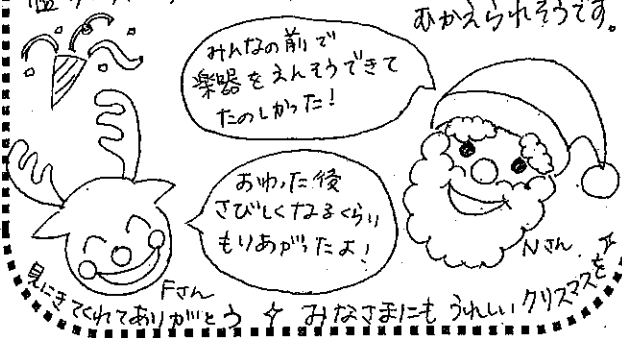 むかえられそうです。
みんなの前で
楽器をえんそうできて
たのしかった!
おわった後
さびしくなるくらい
もりあがったよ!
Nさん
Fさん
見にきてくれてありがとう ☆ みなさまにも うれしい クリスマスを ☆